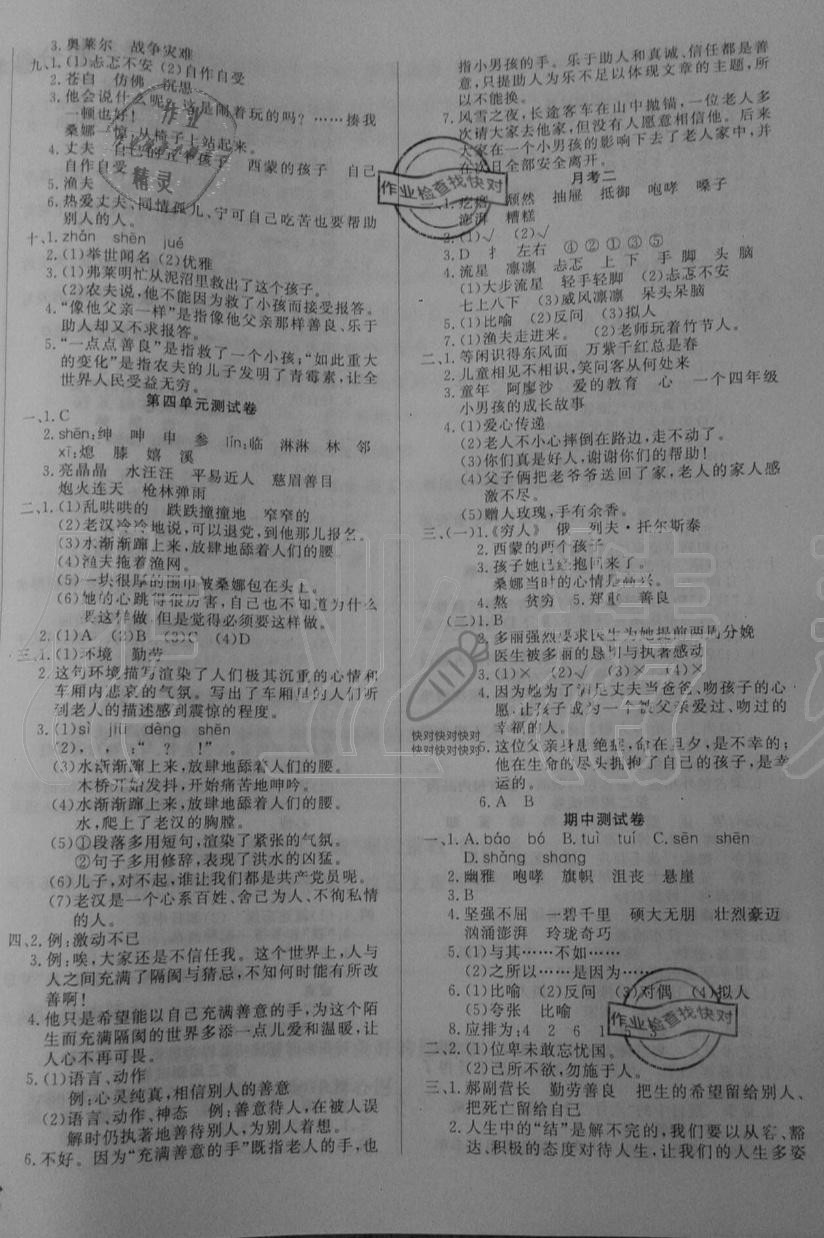 3.奥莱尔　战争灾难
九、1.(1)忐忑不安　(2)自作自受
2.苍白　仿佛　沉思
3.他会说什么呢？这是闹着玩的吗？……揍我
一顿也好！
桑娜一惊，从椅子上站起来。
4.丈夫　自己的五个孩子　西蒙的孩子　自己
自作自受
5.渔夫
6.热爱丈夫、同情孤儿、宁可自己吃苦也要帮助
别人的人。
十、1.zhǎn　shēn　jué
2.(1)举世闻名　(2)优雅
3.(1)弗莱明忙从泥沼里救出了这个孩子。
(2)农夫说，他不能因为救了小孩而接受报答。
4.“像他父亲一样”是指像他父亲那样善良、乐于
助人却又不求报答。
5.“一点点善良”是指救了一个小孩；“如此重大
的变化”是指农夫的儿子发明了青霉素，让全
世界人民受益无穷。
第四单元测试卷
一、1.C
2.shēn：绅　呻　申　参　lín：临　淋淋　林　邻
xī：熄　膝　嬉　溪
3.亮晶晶　水汪汪　平易近人　慈眉善目
炮火连天　枪林弹雨
二、1.(1)乱哄哄的　跌跌撞撞地　窄窄的
(2)老汉冷冷地说，可以退党，到他那儿报名。
(3)水渐渐蹿上来，放肆地舔着人们的腰
(4)渔夫拖着渔网。
(5)一块很厚的围巾被桑娜包在头上。
(6)她的心跳得很厉害，自己也不知道为什么
要这样做，但是觉得必须要这样做。
2.(1)A　(2)B　(3)C　(4)D
三、1.(1)环境　勤劳
2.这句环境描写渲染了人们极其沉重的心情和
车厢内悲哀的气氛。写出了车厢里的人们听
到老人的描述感到震惊的程度。
3.(1)sì　jiū　dǎng　shēn
(2)，，：“　？　！”。
(3)水渐渐蹿上来，放肆地舔着人们的腰。
木桥开始发抖，开始痛苦地呻吟。
(4)水渐渐蹿上来，放肆地舔着人们的腰。
水，爬上了老汉的胸膛。
(5)①段落多用短句，渲染了紧张的气氛。
②句子多用修辞，表现了洪水的凶猛。
(6)儿子，对不起，谁让我们都是共产党员呢。
(7)老汉是一个心系百姓、舍己为人、不徇私情
的人。
四、2.例：激动不已
3.例：唉，大家还是不信任我。这个世界上，人与
人之间充满了隔阂与猜忌，不知何时能有所改
善啊！
4.他只是希望能以自己充满善意的手，为这个陌
生而充满隔阂的世界多添一点儿爱和温暖，让
人心不再可畏。
5.(1)语言、动作
例：心灵纯真，相信别人的善意
(2)语言、动作、神态　例：善意待人，在被人误
解时仍执著地善待别人，为别人着想。
6.不好。因为“充满善意的手”既指老人的手，也
指小男孩的手。乐于助人和真诚、信任都是善
意，只提助人为乐不足以体现文章的主题，所
以不能换。
7.风雪之夜，长途客车在山中抛锚，一位老人多
次请大家去他家，但没有人愿意相信他。后来
大家在一个小男孩的影响下去了老人家中，并
在次日全部安全离开。
月考二
一、1.疙瘩　颓然　抽屉　抵御　咆哮　嗓子
澎湃　糟糕
2.(1)√　(2)√
3.D　扌　左右　④②①③⑤
4.流星　凛凛　忐忑　上　下　手　脚　头　脑
(1)大步流星　轻手轻脚　(2)忐忑不安
七上八下　(3)威风凛凛　呆头呆脑
5.(1)比喻　(2)反问　(3)拟人
6.(1)渔夫走进来。　(2)老师玩着竹节人。
二、1.等闲识得东风面　万紫千红总是春
2.儿童相见不相识，笑问客从何处来
3.童年　阿廖沙　爱的教育　心　一个四年级
小男孩的成长故事
4.(1)爱心传递
(2)老人不小心摔倒在路边，走不动了。
(3)你们真是好人，谢谢你们的帮助！
(4)父子俩把老爷爷送回了家，老人的家人感
激不尽。
(5)赠人玫瑰，手有余香。
三、(一)1.《穷人》　俄　列夫·托尔斯泰
2.西蒙的两个孩子
3.孩子她已经抱回来了。
桑娜当时的心情是高兴。
4.熬　贫穷　5.郑重　善良
(二)1.B
2.多丽强烈要求医生为她提前两周分娩
医生被多丽的恳切与执著感动
3.(1)×　(2)√　(3)×　(4)×
4.因为她为了满足丈夫当爸爸、吻孩子的心
愿，让孩子成为一个被父亲爱过、吻过的
幸福的人。
5.这位父亲身患绝症，命在旦夕，是不幸的；
他在生命的尽头拥抱了自己的孩子，是幸
运的。
6.A　B
快对快对快对
快对快对快对
期中测试卷
一、1.A.báo　bó　B.tuì　tuí　C.sēn　shēn
D.shǎng　shang
2.幽雅　咆哮　旗帜　沮丧　悬崖
3.B
4.坚强不屈　一碧千里　硕大无朋　壮烈豪迈
汹涌澎湃　玲珑奇巧
5.(1)与其……不如……
(2)之所以……是因为……
6.(1)比喻　(2)反问　(3)对偶　(4)拟人
(5)夸张　比喻
8.应排为：4　2　6　1
二、2.(1)位卑未敢忘忧国。
(2)己所不欲，勿施于人。
三、1.郝副营长　勤劳善良　把生的希望留给别人，
把死亡留给自己
2.人生中的“结”是解不完的，我们要以从容、豁
达、积极的态度对待人生，让我们的人生多姿
作业精灵
作业检查找快对
作业检查找快对